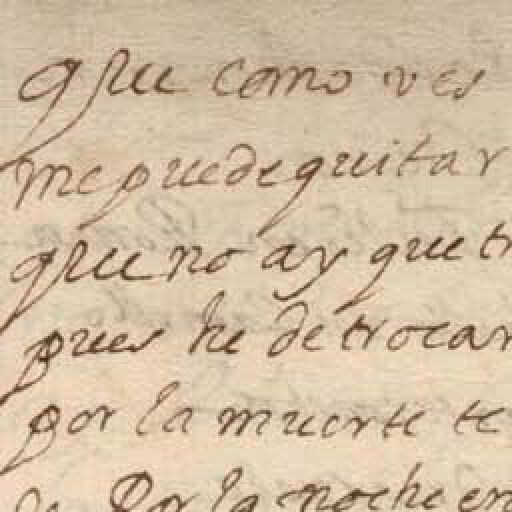 que como ves
me puede quitar
que no ay que tr
pues he de trocar
por la muerte te
Por la noche en